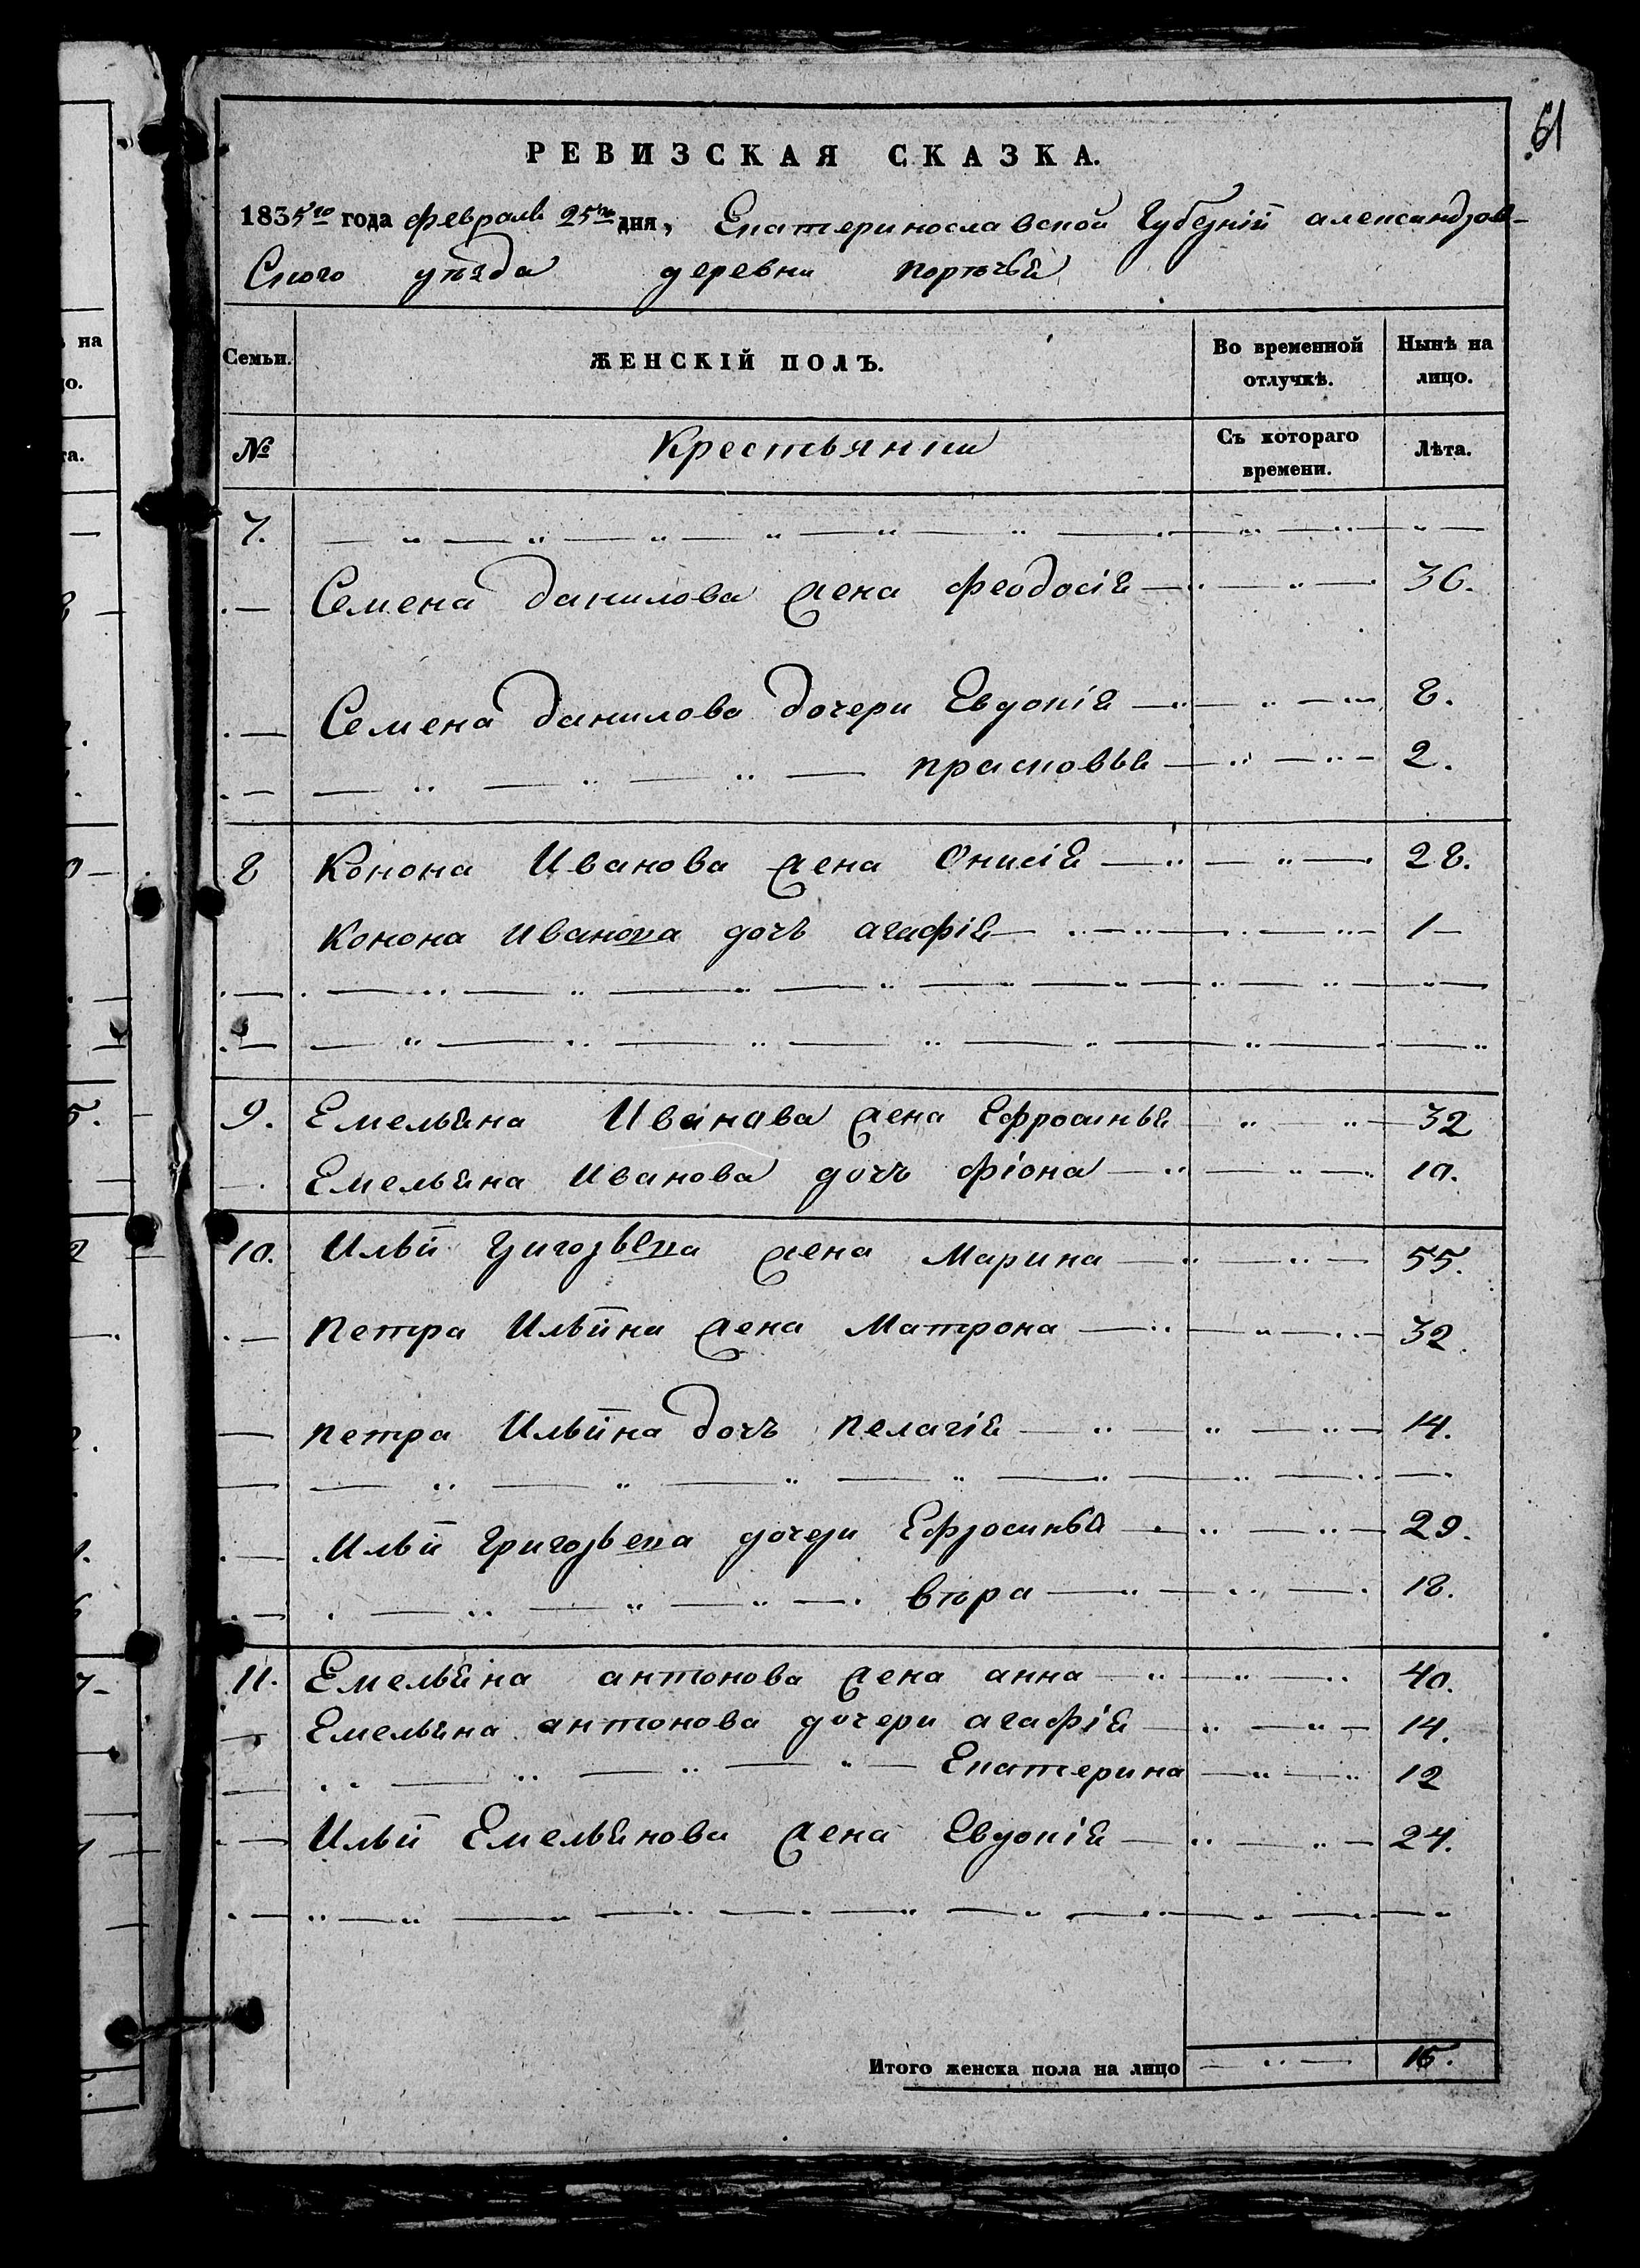 61
РЕВИЗСКАЯ СКАЗКА.
1835го года февраля 25го дня, Екатеринославской Губерніи александров-
Ского уѣзда деревни
Семьи. ЖЕНСКІЙ ПОЛЪ. Во временной отлучкѣ. Нынѣ на лицо.
№ Крестьянки Съ котораго времени. Лѣта.
7.
Семена данилова жена феодосія 36.
Семена данилова дочери Евдокія 8.
прасковья 2.
8 Конона Иванова жена Онисія 28.
Конона Иванова дочь агафія 1
9. Емельяна Иванова жена Ефросинья 32
Емельяна Иванова дочь фіона 10.
10. Ильи Григорьева жена Марина 55.
петра Ильина жена Матрона 32.
петра Ильина дочь пелагія 14.
Ильи Григорьева дочери Ефросинья 29.
вѣра 18.
11. Емельяна антонова жена анна 40.
Емельяна антонова дочери агафія 14.
Екатерина 12
Ильи Емельянова жена Евдокія 24.
Итого женска пола на лицо 15.